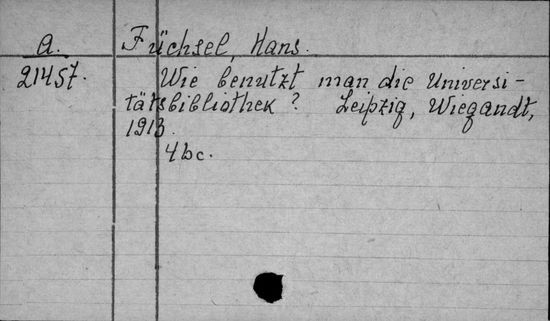 A. Füchsel, Hans.
21457. Wie benutzt man die Universi-
tätsbibliothek? Leipzig, Wiegandt,
1913.
4 bc.